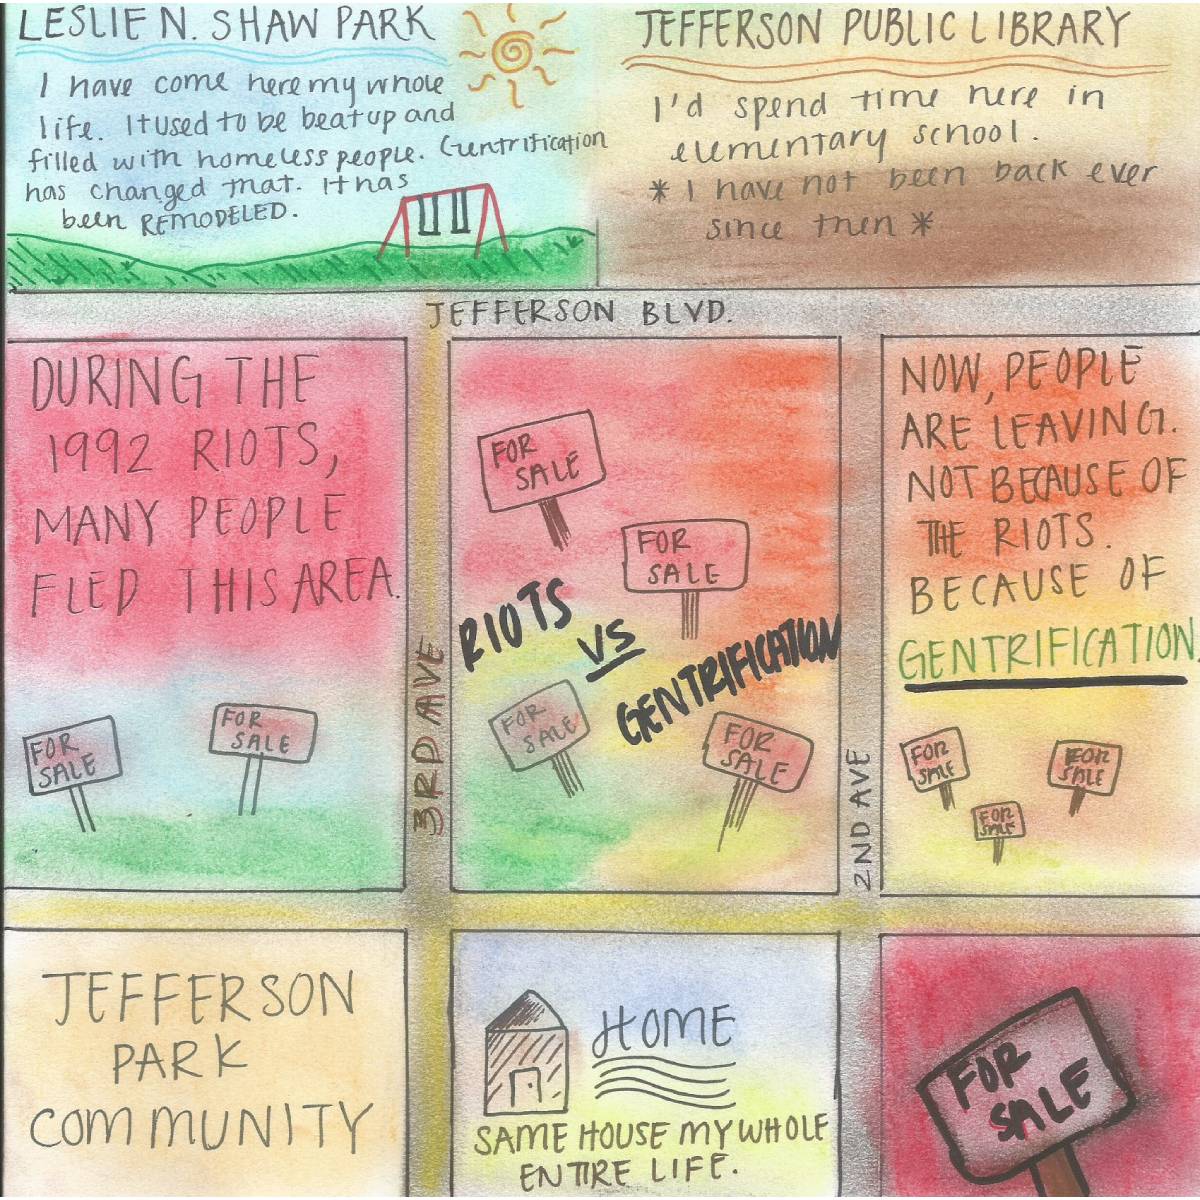 LESLIE N. SHAW PARK
I have come here my whole
life. It used to be beat up and
filled with homeless people. Gentrification
has changed that. It has
been REMODELED.
JEFFERSON PUBLIC LIBRARY
I'd spend time here in
elementary school.
* I have not been back ever
since then *
JEFFERSON BLVD.
DURING THE
1992 RIOTS,
MANY PEOPLE
FLED THIS AREA.
FOR
SALE
FOR
SALE
3RD AVE
FOR
SALE
FOR
SALE
RIOTS
VS
GENTRIFICATION
FOR
SALE
FOR
SALE
2ND AVE
NOW, PEOPLE
ARE LEAVING.
NOT BECAUSE OF
THE RIOTS.
BECAUSE OF
GENTRIFICATION.
FOR
SALE
FOR
SALE
FOR
SALE
JEFFERSON
PARK
COMMUNITY
HOME
SAME HOUSE MY WHOLE
ENTIRE LIFE.
FOR
SALE